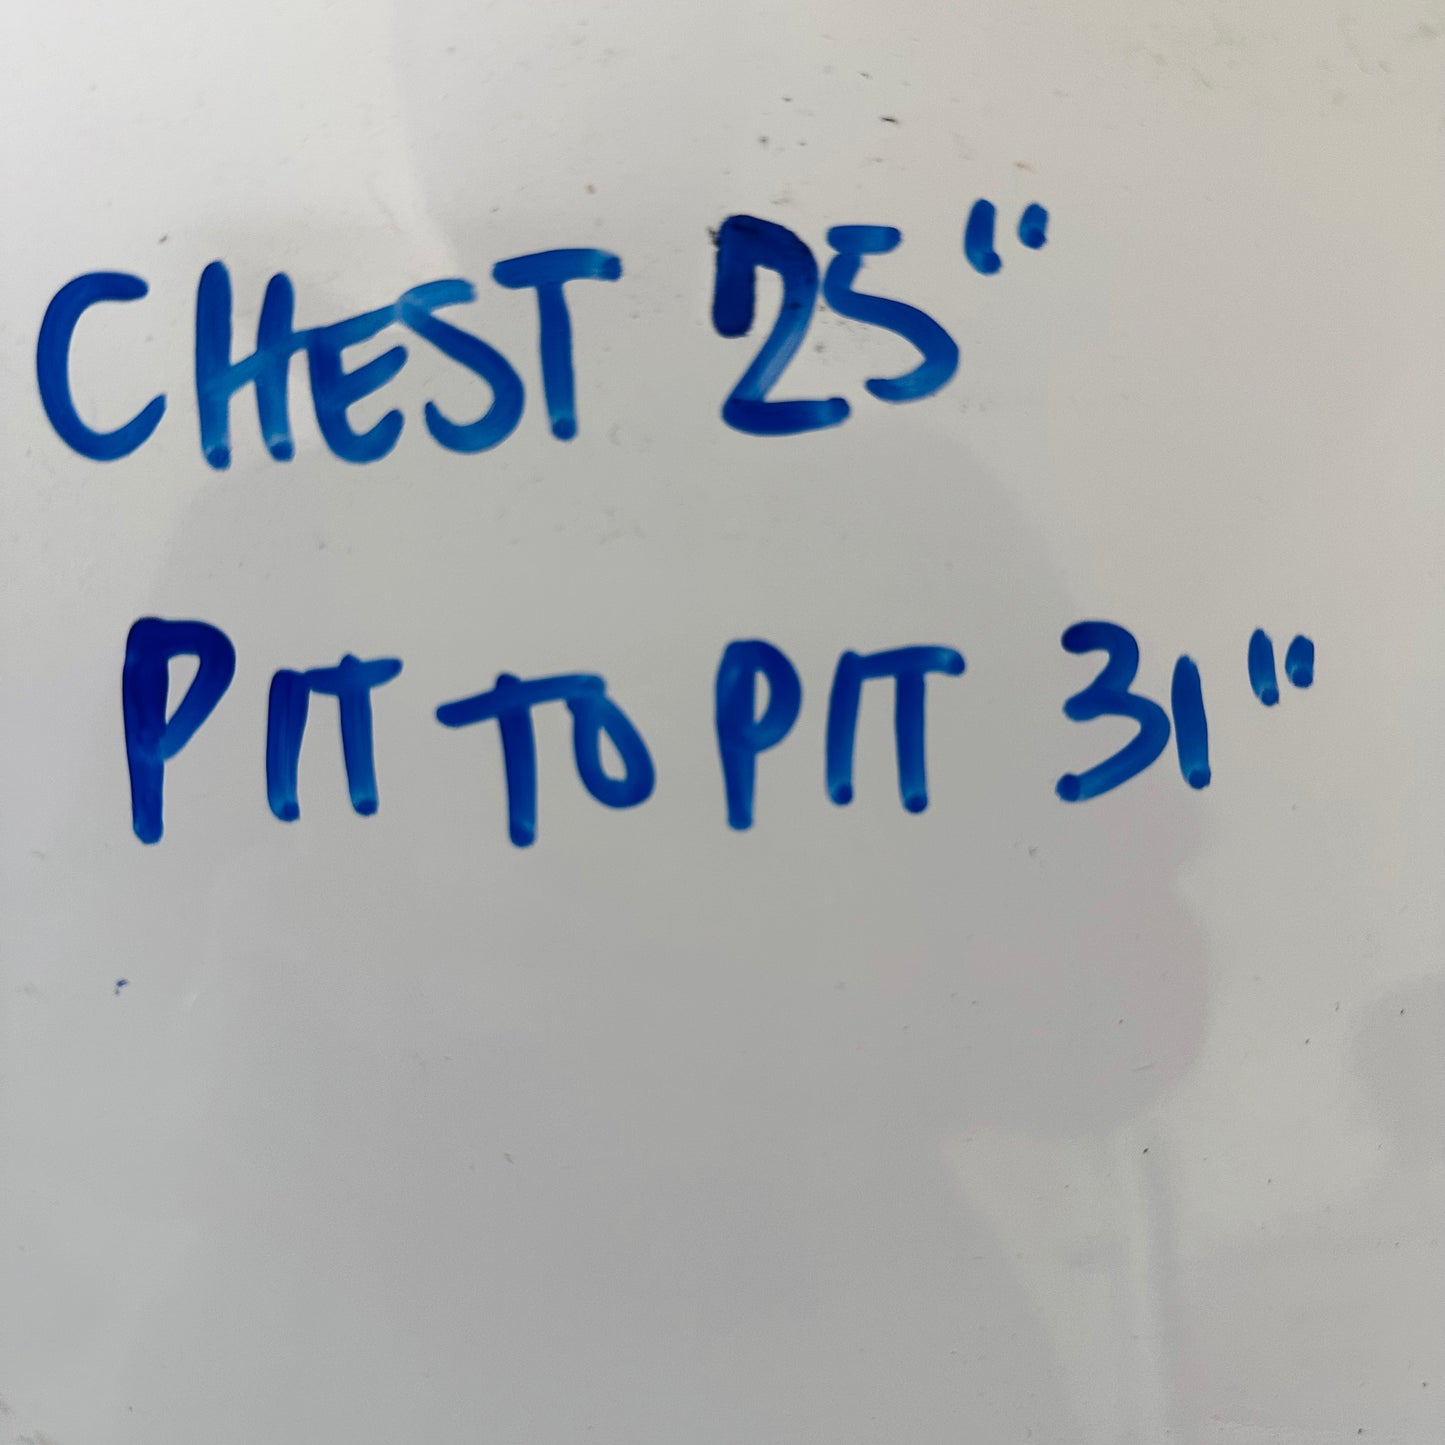 CHEST 25"
PIT TO PIT 31"